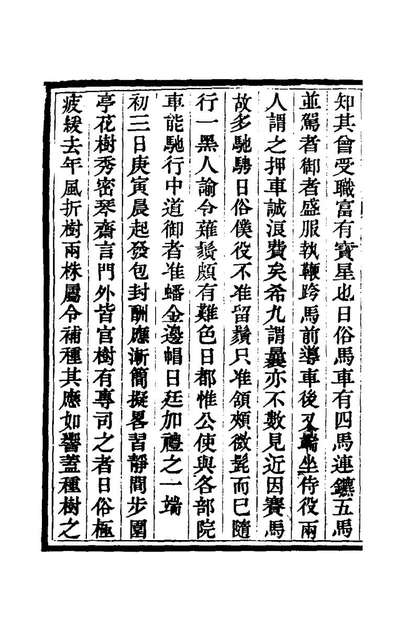 知其曾受職富有寳星也日俗馬車有四馬連鑣五馬
並駕者御者盛服執鞭跨馬前導車後又端坐侍役兩
人謂之押車誠浪費矣希九謂曩亦不數見近因賽馬
故多馳騁日俗僕役不准留鬚只准頷頰微髭而已隨
行一黑人諭令薙鬚頗有難色日都惟公使與各部院
車能馳行中道御者准蟠金邊帽日廷加禮之一端
初三日庚寅晨起發包封酬應漸簡擬畧習靜間步園
亭花樹秀密琴齋言門外皆官樹有專司之者日俗極
疲緩去年風折樹兩株屬令補種其應如響蓋種樹之